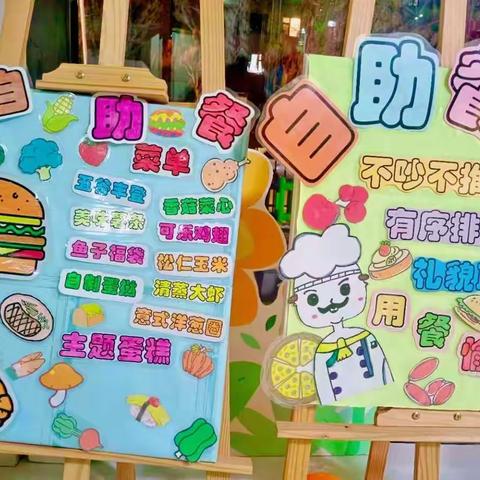 自助餐
菜单
五谷丰登
香菇菜心
美味薯条
可乐鸡翅
鱼子福袋
松仁玉米
自制蛋挞
清蒸大虾
意式洋葱圈
主题蛋糕
自助餐
不吵不推
有序排
礼貌
用餐愉